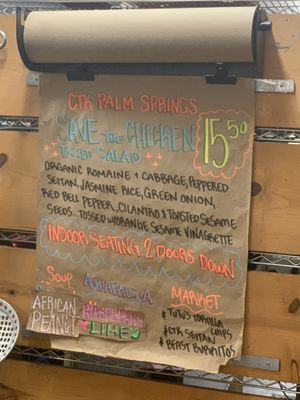 CTK PALM SPRINGS
SAVE THE CHICKEN
TOSSED SALAD
15.50
ORGANIC ROMAINE + CABBAGE, PEPPERED
SEITAN, JASMINE RICE, GREEN ONION,
RED BELL PEPPER, CILANTRO & TOASTED SESAME
SEEDS. TOSSED W/ ORANGE SESAME VINAGRETTE
INDOOR SEATING 2 DOORS DOWN
SOUP
AFRICAN
PEANUT
AGUA FRESCA
RASPBERRY
LIME
MARKET
* TUTU'S TORTILLA
CHIPS
* CTK SEITAN
* BEAST BURRITOS